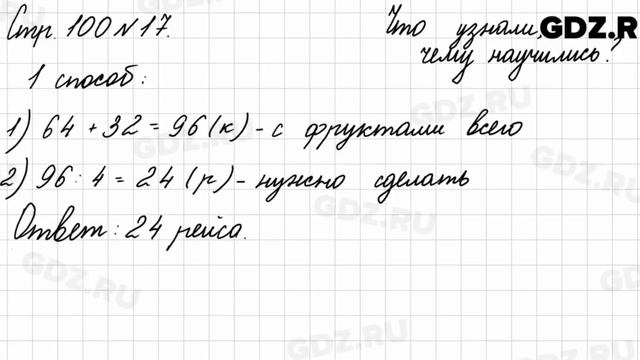 Стр. 100 №17.
Что узнали,
чему научились?
GDZ.R
1 способ:
1) 64 + 32 = 96 (к) - с фруктами всего
2) 96 : 4 = 24 (р) - нужно сделать
Ответ: 24 рейса.
GDZ.RU
GDZ.RU
GDZ.RU
GDZ.RU
GDZ.RU
GDZ.RU